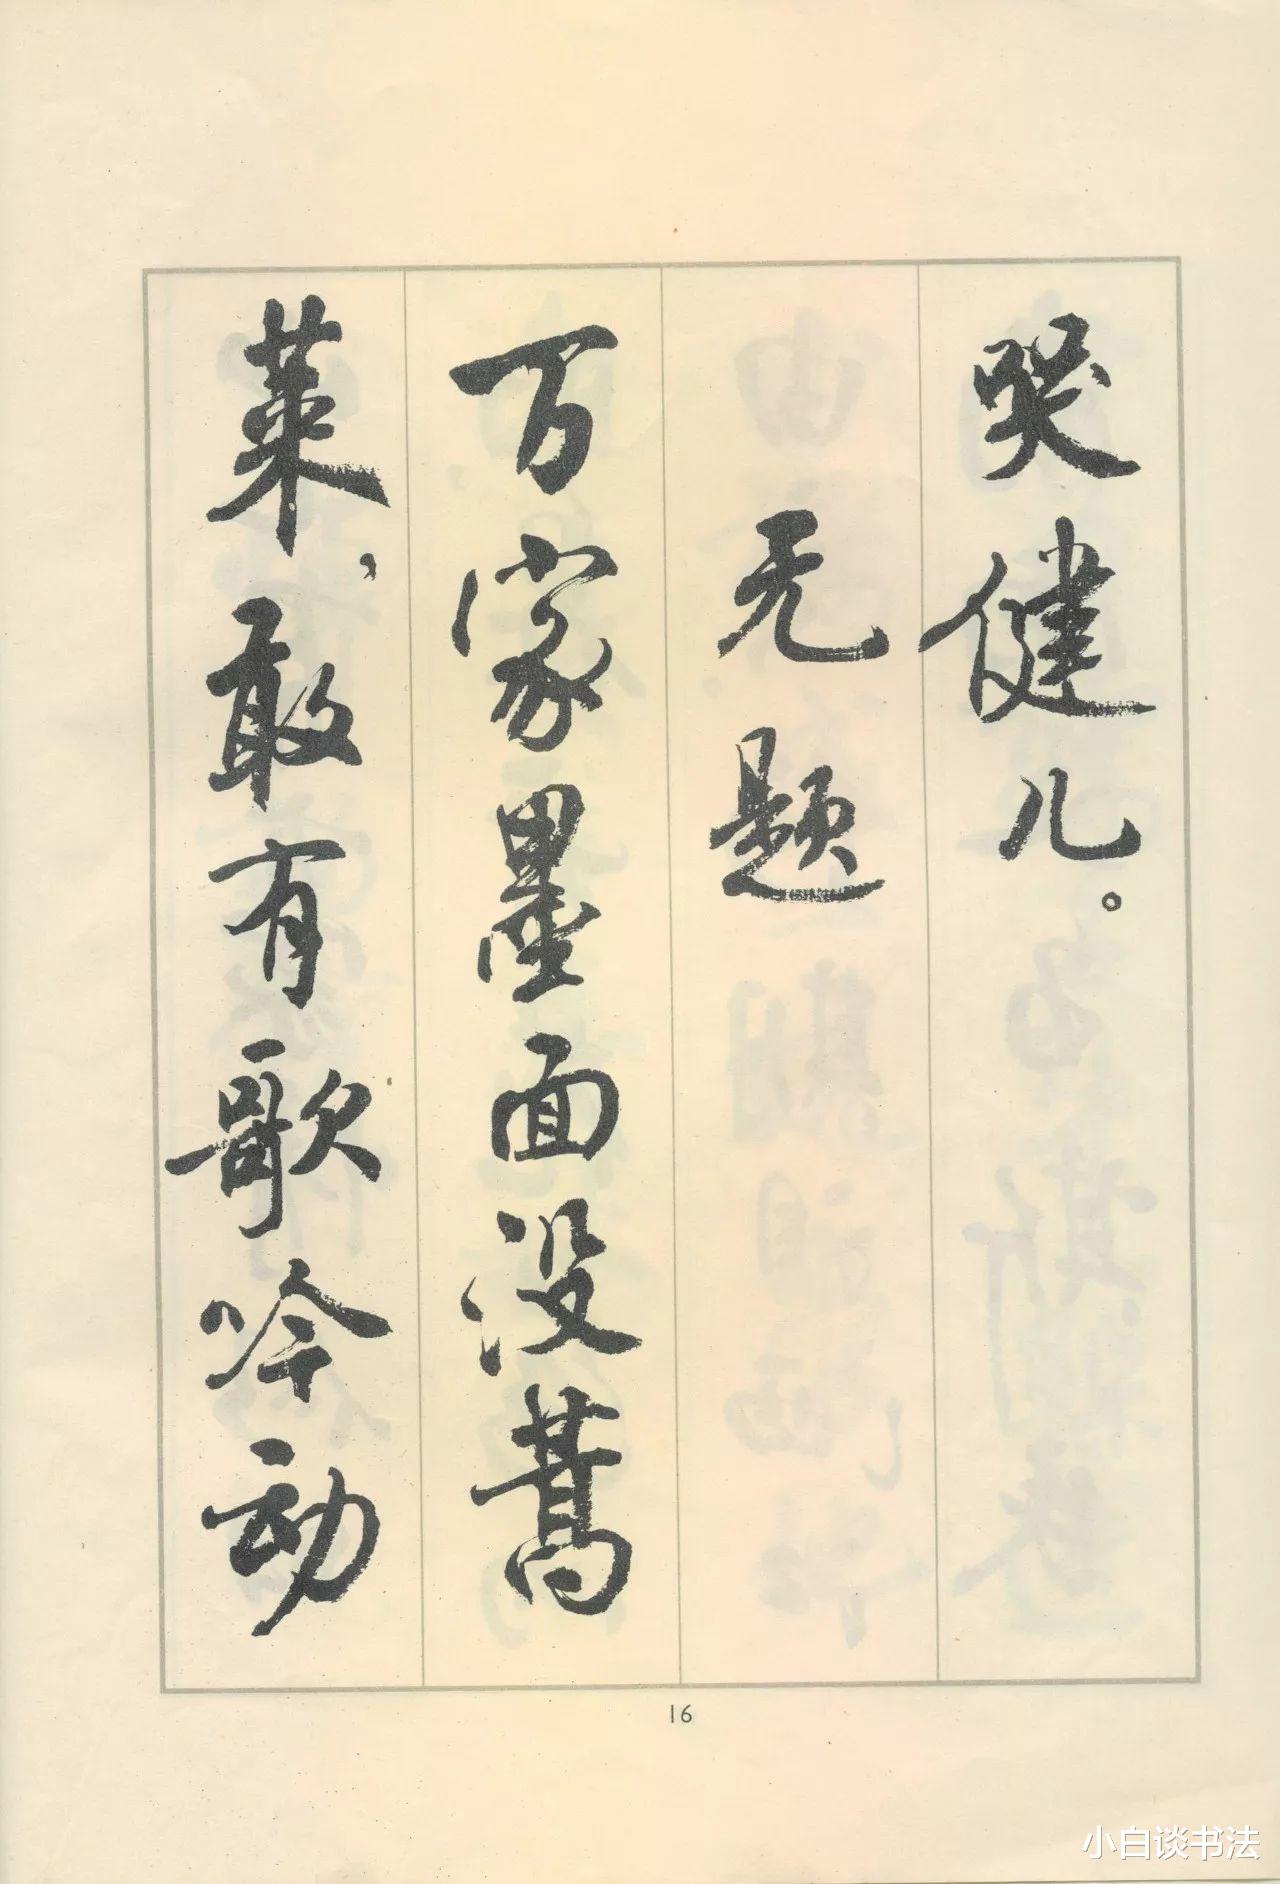 哭健儿。
无题
万家墨面没蒿
莱，敢有歌吟动
16
小白谈书法